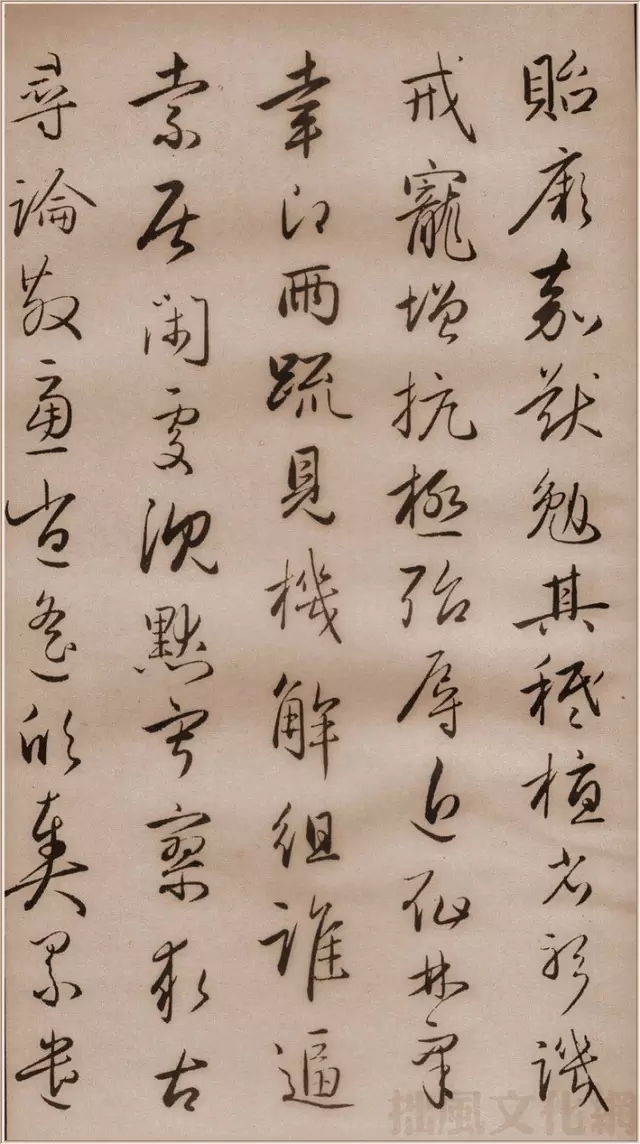 貽厥嘉猷勉其祗植省躬譏
戒寵增抗極殆辱近恥林皋
幸即兩疏見機解組誰逼
索居閑處沉默寂寥求古
尋論散慮逍遙欣奏累遣
拙風文化網